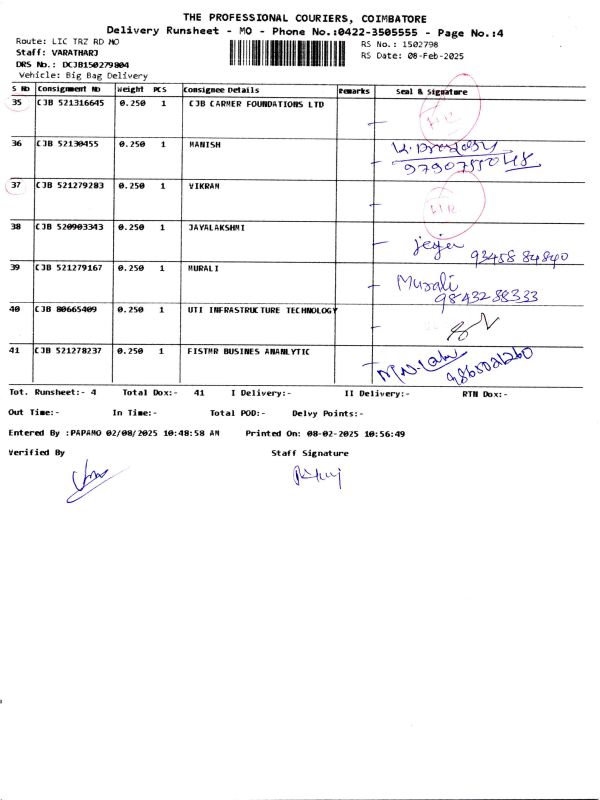 THE PROFESSIONAL COURIERS, COIMBATORE
Delivery Runsheet - MO - Phone No.:0422-3505555 - Page No.:4
Route: LIC TRZ RD MO
RS No.: 1502798
Staff: VARATHARJ
RS Date: 08-Feb-2025
DRS No.: DCJB150279804
Vehicle: Big Bag Delivery
S No Consignment No Weight PCS Consignee Details Remarks Seal & Signature
35 CJB 521316645 0.250 1 CJB CARMER FOUNDATIONS LTD
36 CJB 52130455 0.250 1 MANISH
37 CJB 521279283 0.250 1 VIKRAM
38 CJB 520903343 0.250 1 JAYALAKSHMI
93458 84840
39 CJB 521279167 0.250 1 MURALI Murali
9843288333
40 CJB 80665409 0.250 1 UTI INFRASTRUCTURE TECHNOLOGY
41 CJB 521278237 0.250 1 FISTMR BUSINES ANANLYTIC
Tot. Runsheet:- 4 Total Dox:- 41 I Delivery:- II Delivery:- RTN Dox:-
Out Time:- In Time:- Total POD:- Delvy Points:-
Entered By :PAPAMO 02/08/2025 10:48:58 AM Printed On: 08-02-2025 10:56:49
Verified By Staff Signature